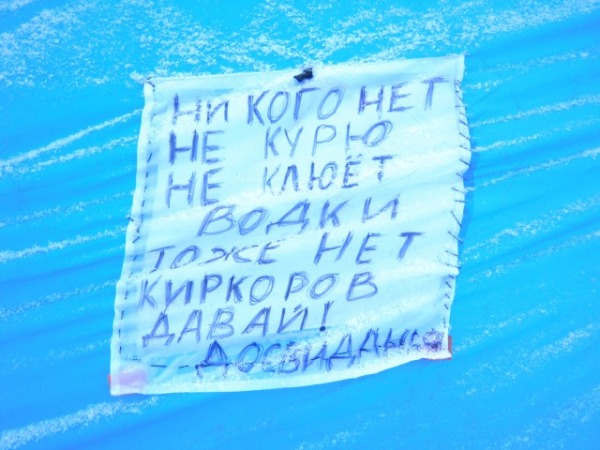 НИКОГО НЕТ
НЕ КУРЮ
НЕ КЛЮЁТ
ВОДКИ
ТОЖЕ НЕТ
КИРКОРОВ
ДАВАЙ!